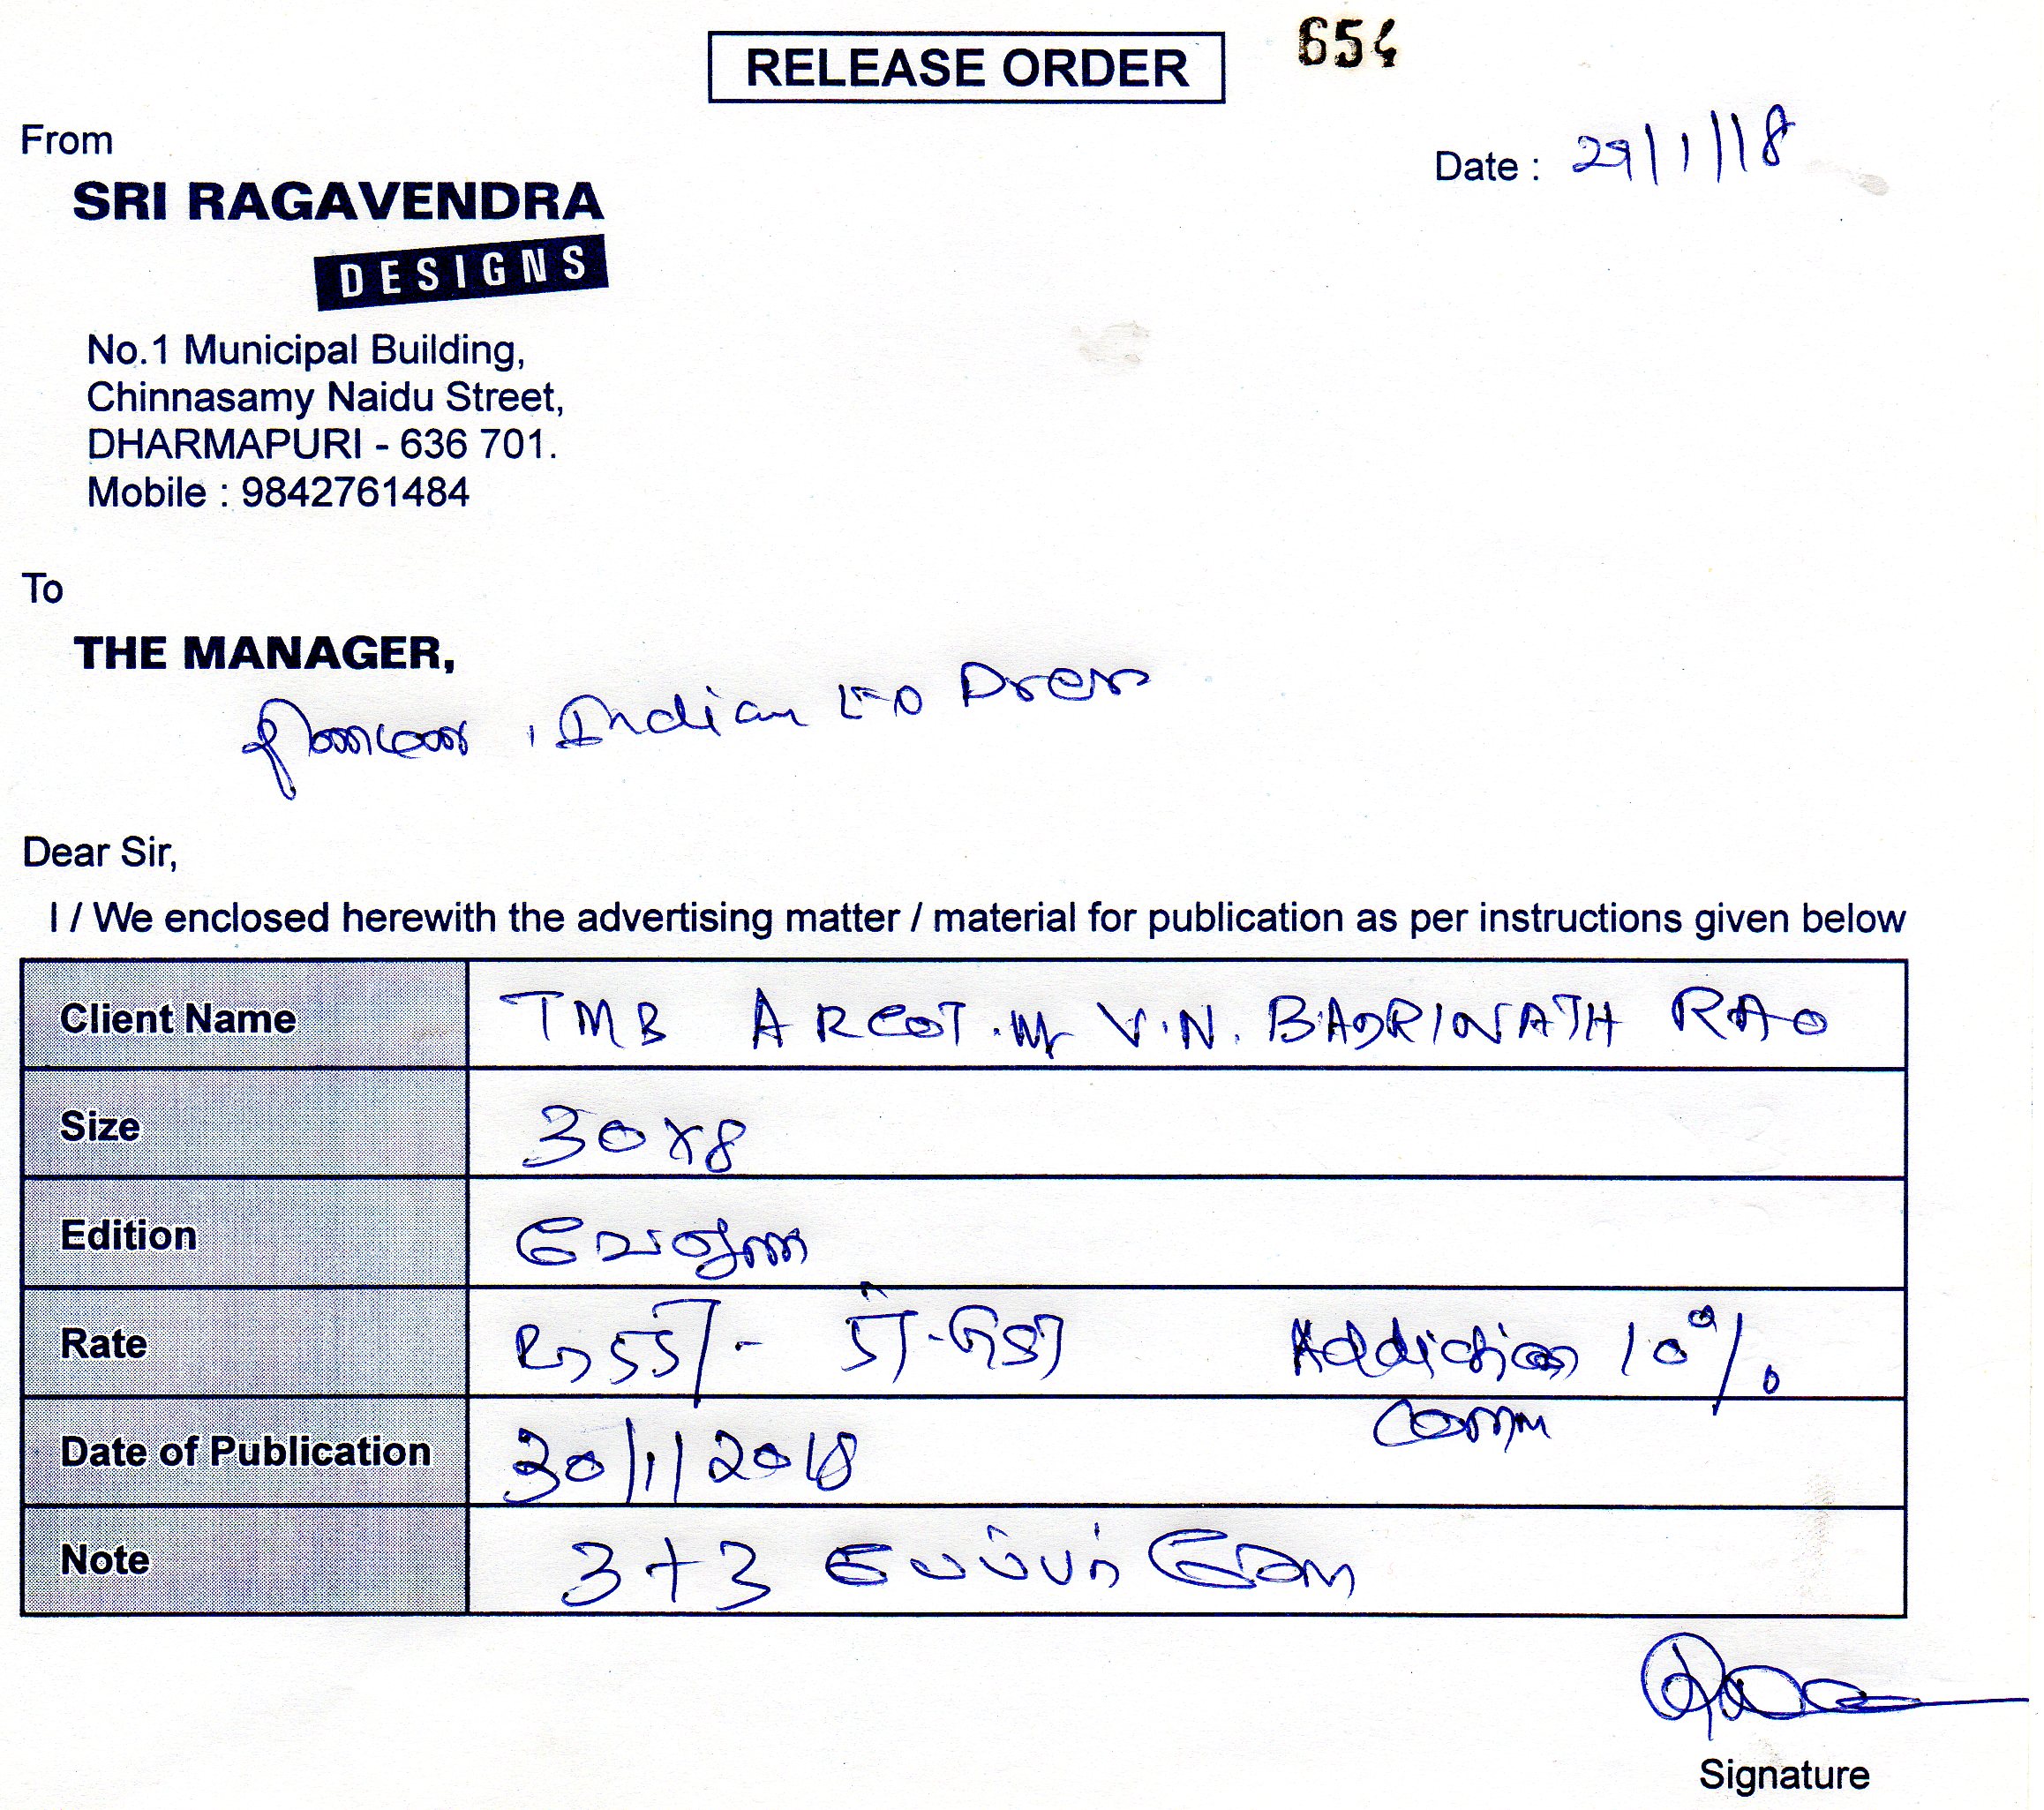 RELEASE ORDER 654
From
Date : 29/1/18
SRI RAGAVENDRA
DESIGNS
No.1 Municipal Building,
Chinnasamy Naidu Street,
DHARMAPURI - 636 701.
Mobile : 9842761484
To
THE MANAGER,
தினமணி, Indian
Dear Sir,
I / We enclosed herewith the advertising matter / material for publication as per instructions given below
Client Name TMB ARCOT. V.N. BADRINATH RAO
Size 30x8
Edition வேலூர்
Rate Rs 55/- 5% GST 10%
Comm
Date of Publication 30/1/2018
Note 3+3 பேப்பர் தேவை
Signature